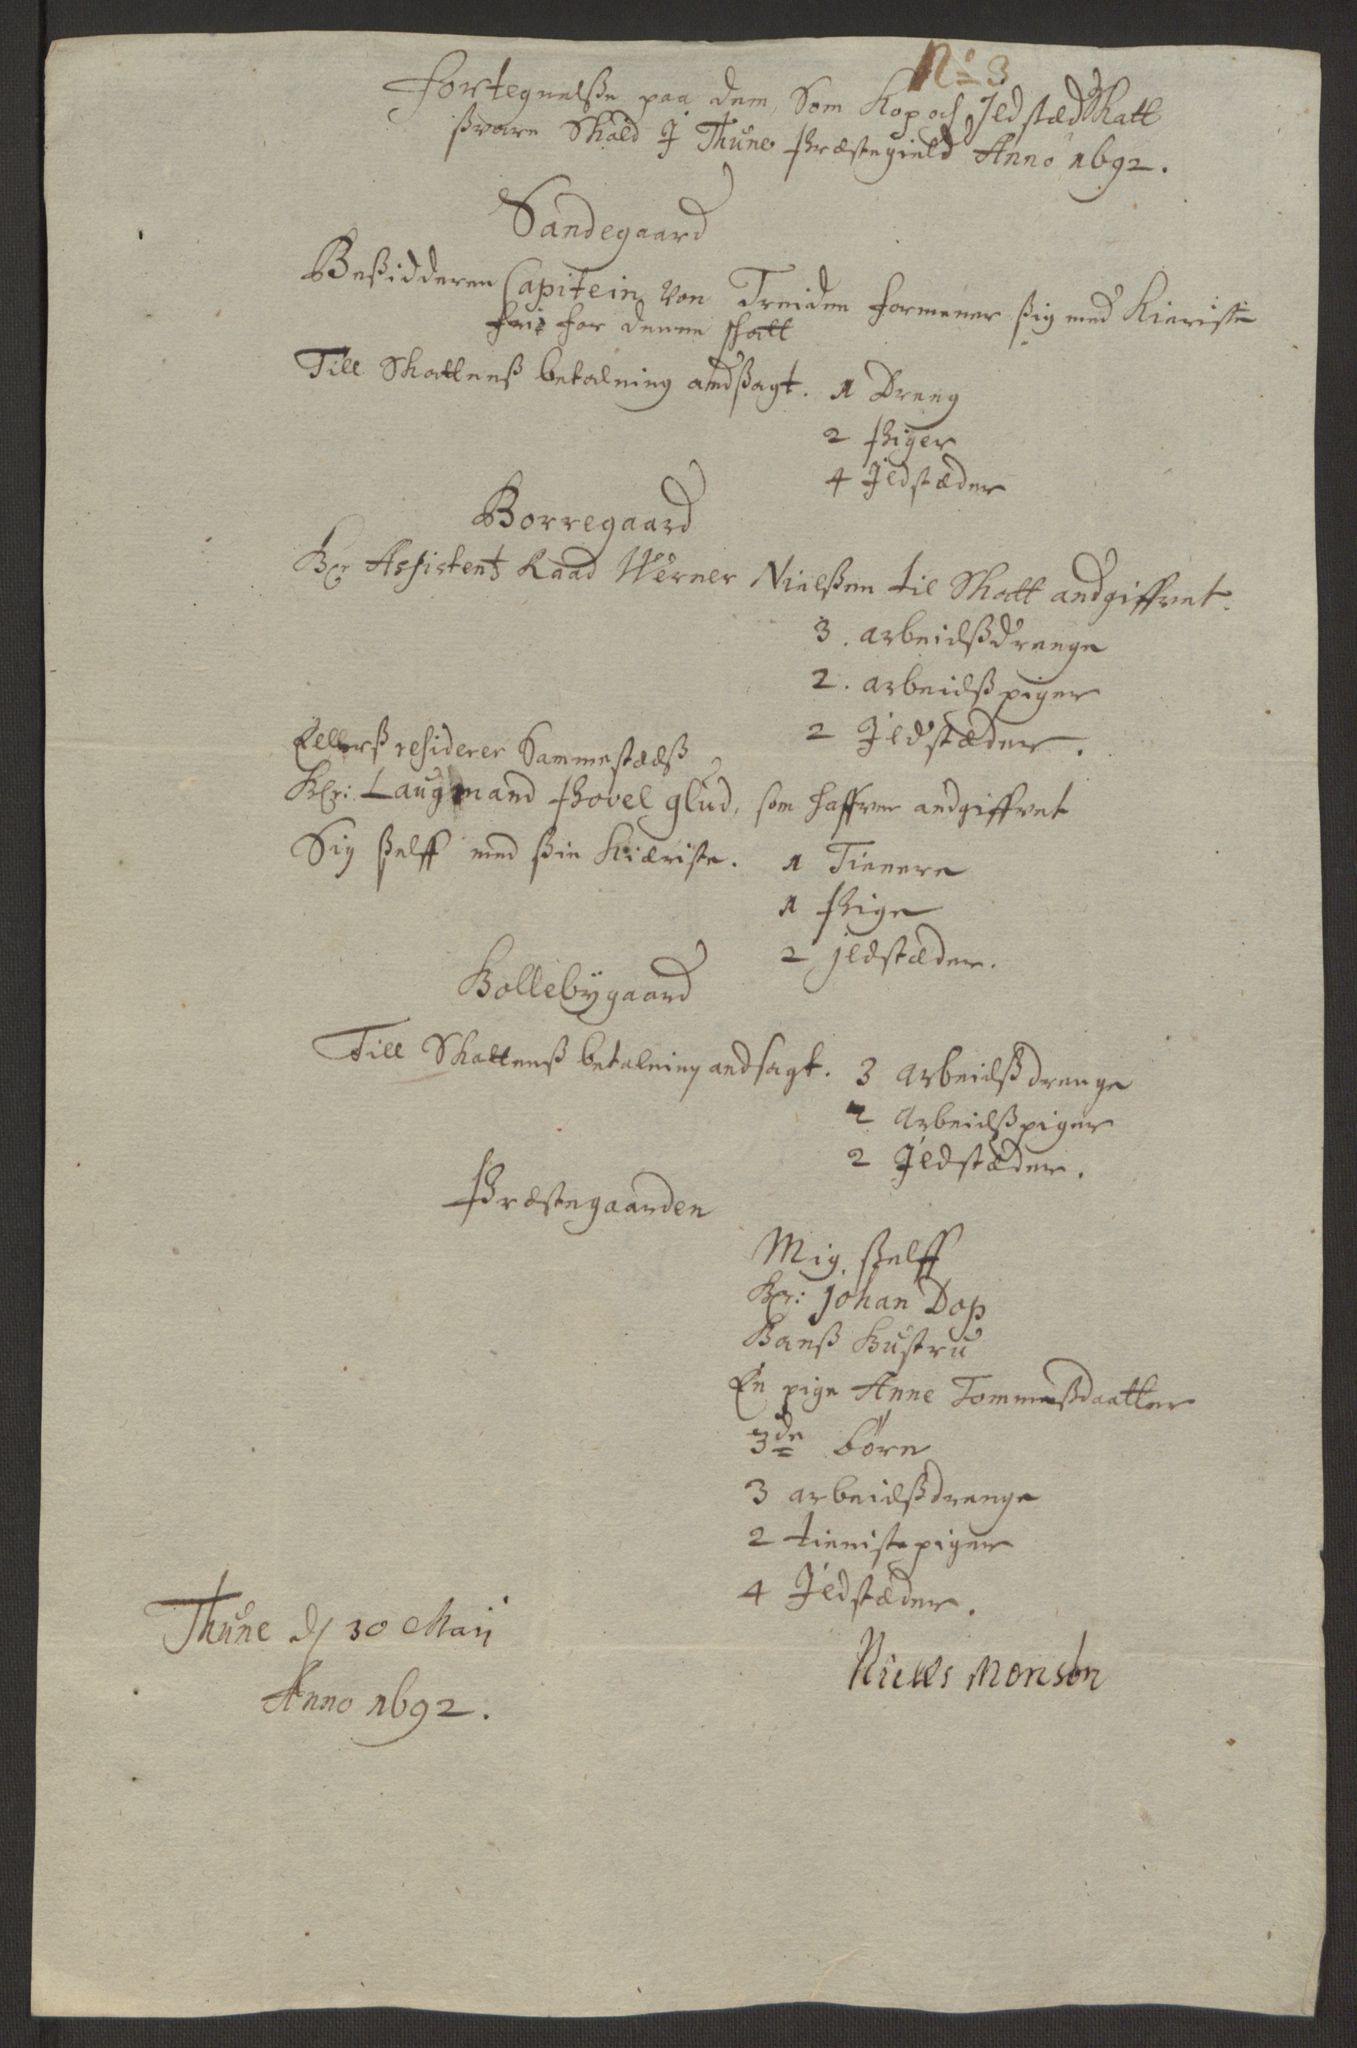 No 3
Fortegnelsse paa dem, Som Kop och Jldstæd Skatt
ssvare Skald J Thune Præstegield Anno 1692.
Sandegaard
Bessidderen Capitein Von Treiden formener ssig med Kieriste
fri for denne skatt
Till Skattenss betalning andssagt. 1 Dreng
2 Piger
4 Jldstæder
Borregaard
Hr Assistentz Raad Werner Nielssen til Skatt andgiffvet.
3. arbeidssdrenge
2. arbeidsspiger
2 Jldstæder.
Ellerss residerer Sammestædss
Hr: Laugmand Povel Glud, som haffver andgiffvet
Sig sselff med ssin Kiæriste. 1 Tienere
1 Pige
2 jldstæder.
Kollebygaard
Till Skattenss betalning andsagt. 3 arbeidssdrenge
2 Arbeidsspiger
2 Jldstæder.
Præstegaarden
Mig sselff
Hr: Johan Dop
Hanss Hustru
En pige Anne Tommessdaatter
3de børn
3 arbeidssdrenge
2 tienistepiger
4 Jldstæder.
Thune d 30 Maij
Anno 1692.
Niells Monsøn